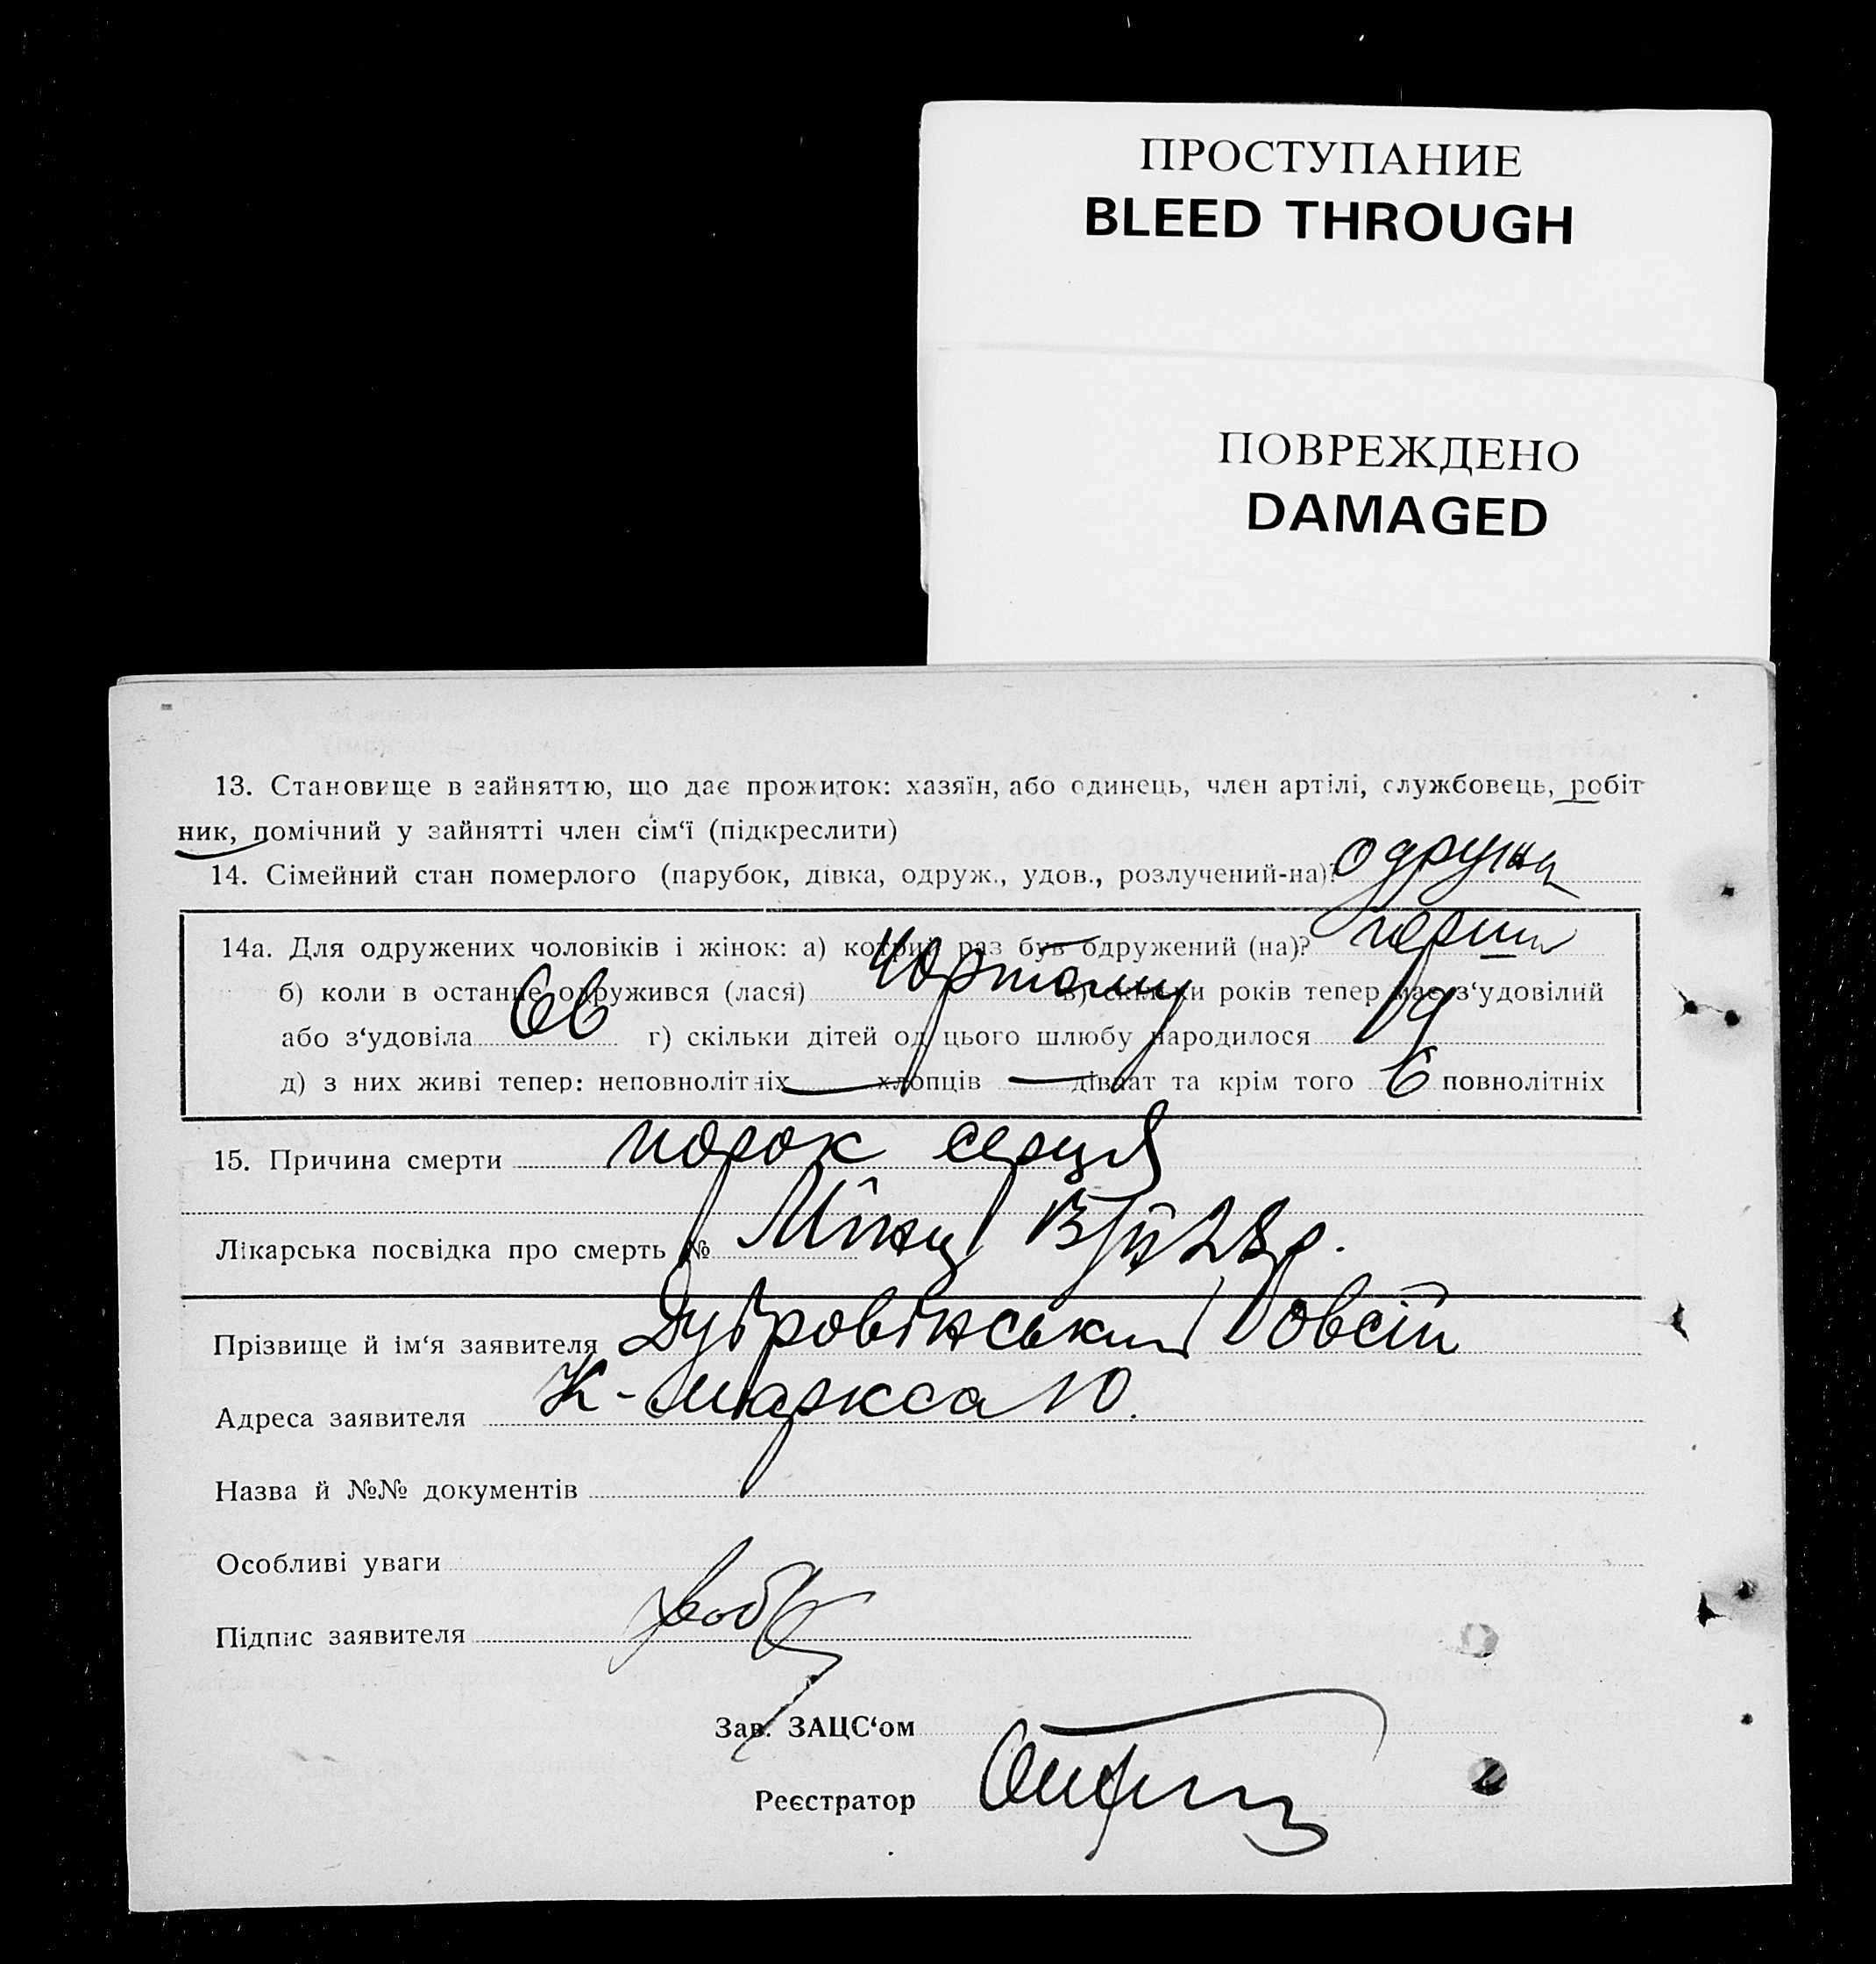 ПРОСТУПАНИЕ
BLEED THROUGH
ПОВРЕЖДЕНО
DAMAGED
13. Становище в зайняттю, що дає прожиток: хазяїн, або одинець, член артілі, службовець, робіт
ник, помічний у зайнятті член сім‘ї (підкреслити)
14. Сімейний стан померлого (парубок, дівка, одруж., удов., розлучений-на)? одружна
14а. Для одружених чоловіків і жінок: а) котрий раз був одружений (на)? перший
б) коли в останнє одружився (лася) в) скільки років тепер має з‘удовілий
або з‘удовіла 66 г) скільки дітей од цього шлюбу народилося
д) з них живі тепер: неповнолітніх — хлопців — дівчат та крім того 6 повнолітніх
15. Причина смерти порок серця
Лікарська посвідка про смерть № 28р.
Прізвище й ім‘я заявителя Дубровінський Овсій
Адреса заявителя К-Маркса 10.
Назва й №№ документів
Особливі уваги
Підпис заявителя
Зав. ЗАЦС‘ом
Реєстратор